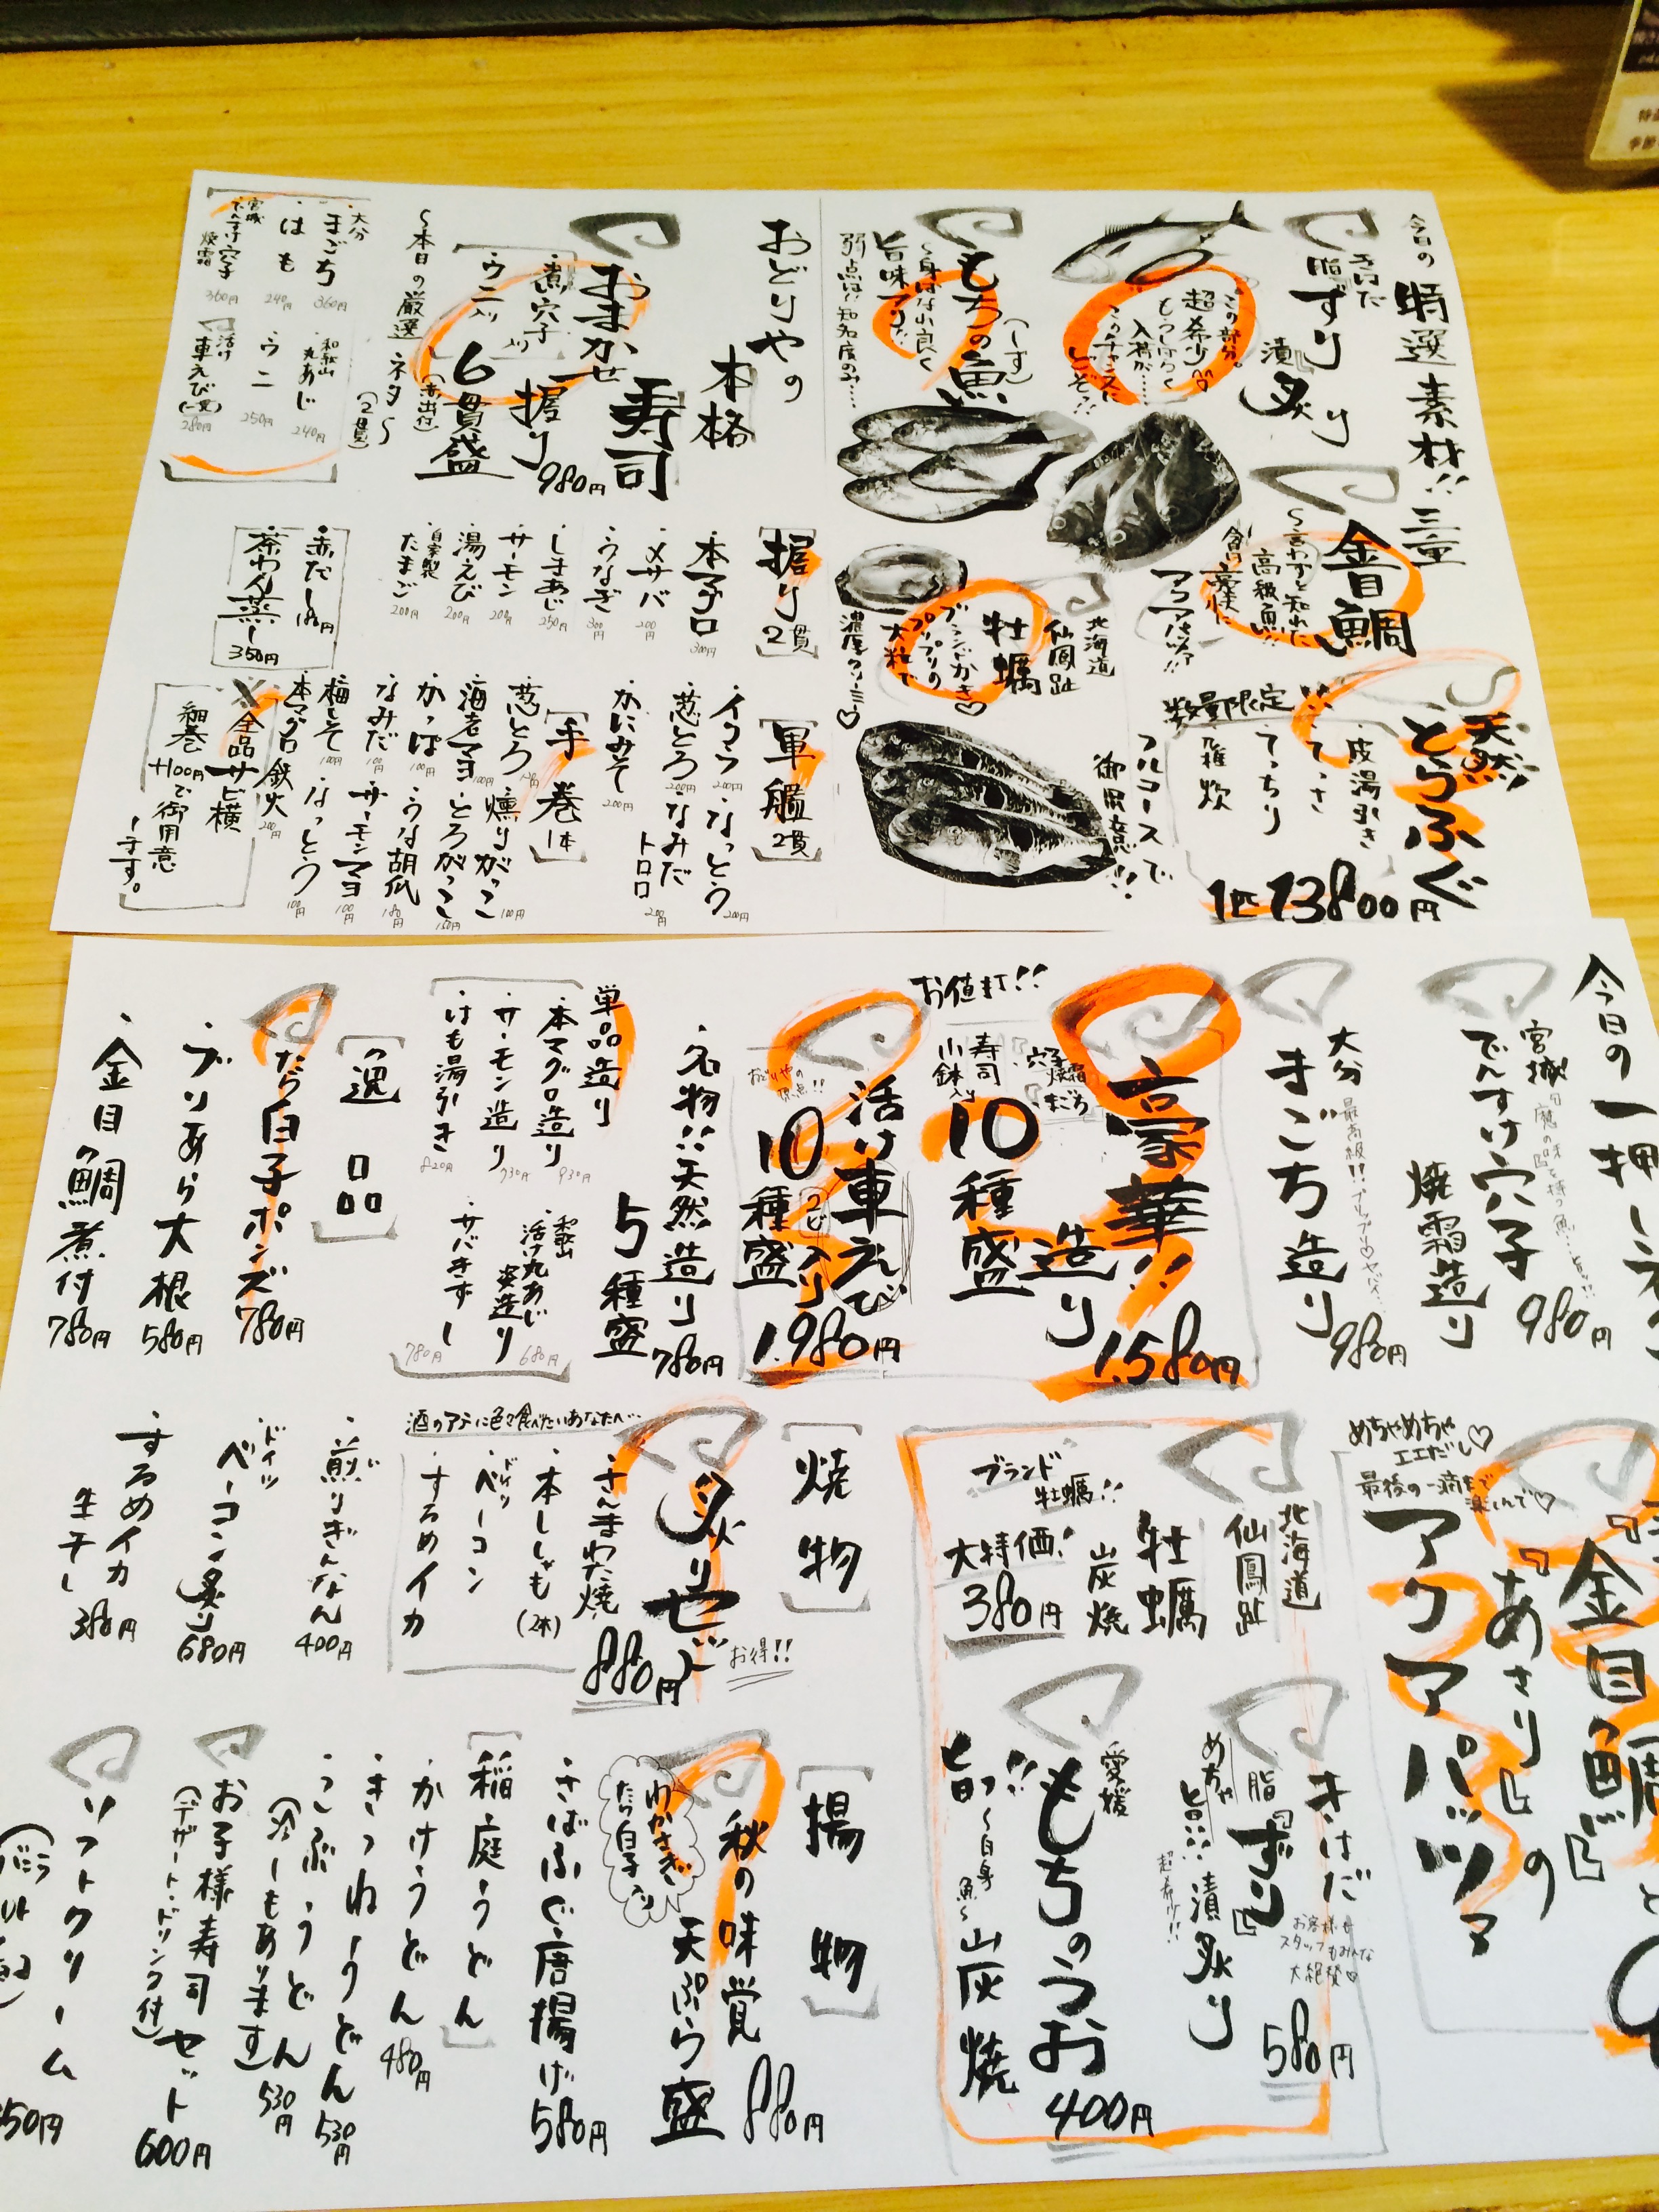 今日の特選素材!!三重
きはだ
脂ずり
漬炙り
この部分。
超希少品
もうしばらく
入荷が……
このチャンスに
どうぞ!!
もちの魚
(しず)
〜身はな小良く
旨味アリ!!
弱点は!!知名度のみ……
金目鯛
〜言わずと知れた
高級魚!!
アクアパッツァ!!
北海道
仙鳳趾
牡蠣
ブランドかき♡
プリプリの
大粒で
濃厚クリーミー♡
天然!!
とらふぐ
皮湯引き
てっさ
てっちり
雑炊
数量限定
1匹13800円
フルコースで
御用意!!
おどりやの
本格
寿司
おまかせ握り
煮穴子入り
ウニ入り
6貫盛
980円
(赤出付)
〜本日の厳選ネタ〜
(2貫)
大分
まごち 360円
はも 240円
宮城
でんすけ穴子
焼霜 360円
和歌山
丸あじ 240円
ウニ 250円
活け
車えび(一貫) 280円
握り2貫
本マグロ 300円
〆サバ 200円
うなぎ 300円
しまあじ 250円
サーモン 200円
湯えび 200円
自家製
たまご 200円
赤だし 180円
茶わん蒸し 350円
軍艦2貫
イクラ 200円
なっとう 200円
葱とろ 200円
なみだトロロ 200円
かにみそ 200円
手巻1本
葱とろ
燻りがっこ 100円
海老マヨ 100円
とろがっこ 150円
かっぱ 100円
うな胡瓜 180円
なみだ 100円
サーモンマヨ 100円
梅しそ 100円
なっとう 100円
本マグロ鉄火 200円
※全品サビ横
細巻+100円で御用意
します。
今日の一押しネタ
宮城
でんすけ穴子
焼霜造り
980円
大分
まごち造り
最高級!!
980円
豪華!!
造り
10種盛
1.580円
穴子焼霜
まごち
寿司
小鉢入り
お値打!!
活け車えび
2ピ入り
10種盛
1.980円
おどりやの
原点!!
名物!!天然造り
5種盛
780円
単品造り
本マグロ造り 930円
サーモン造り 930円
はも湯引き 820円
和歌山
活け丸あじ
姿造り 680円
サバきずし 780円
逸品
たら白子ポンズ 780円
ブリあら大根 580円
金目鯛煮付 780円
めちゃめちゃ
エエだし♡
最後の一滴まで
楽しんで♡
『金目鯛』と
『あさり』の
アクアパッツァ
北海道
仙鳳趾
牡蠣
炭焼
ブランド
牡蠣!!
大特価!
380円
きはだ
脂『ずり』
漬炙り
めちゃ
旨い!!
超希少!!
お客様も
スタッフもみんな
大絶賛♡
580円
愛媛
もちのうお
炭焼
旨っ!!
〜白身魚〜
400円
焼物
炙りセット
さんまわた焼
本ししゃも(2本)
ドイツ
ベーコン
するめイカ
880円
お得!!
酒のアテに色々食べたいあなたへ…
煎りぎんなん 400円
ドイツ
ベーコン炙り 680円
するめイカ
生干し 380円
揚物
秋の味覚
天ぷら盛
わかさぎ
たら白子入り
880円
さばふぐ唐揚げ 580円
稲庭うどん
かけうどん 480円
きつねうどん 530円
こぶうどん 530円
(冷しもあります)
お子様寿司セット
(デザート・ドリンク付)
600円
ソフトクリーム
(バニラ
50円